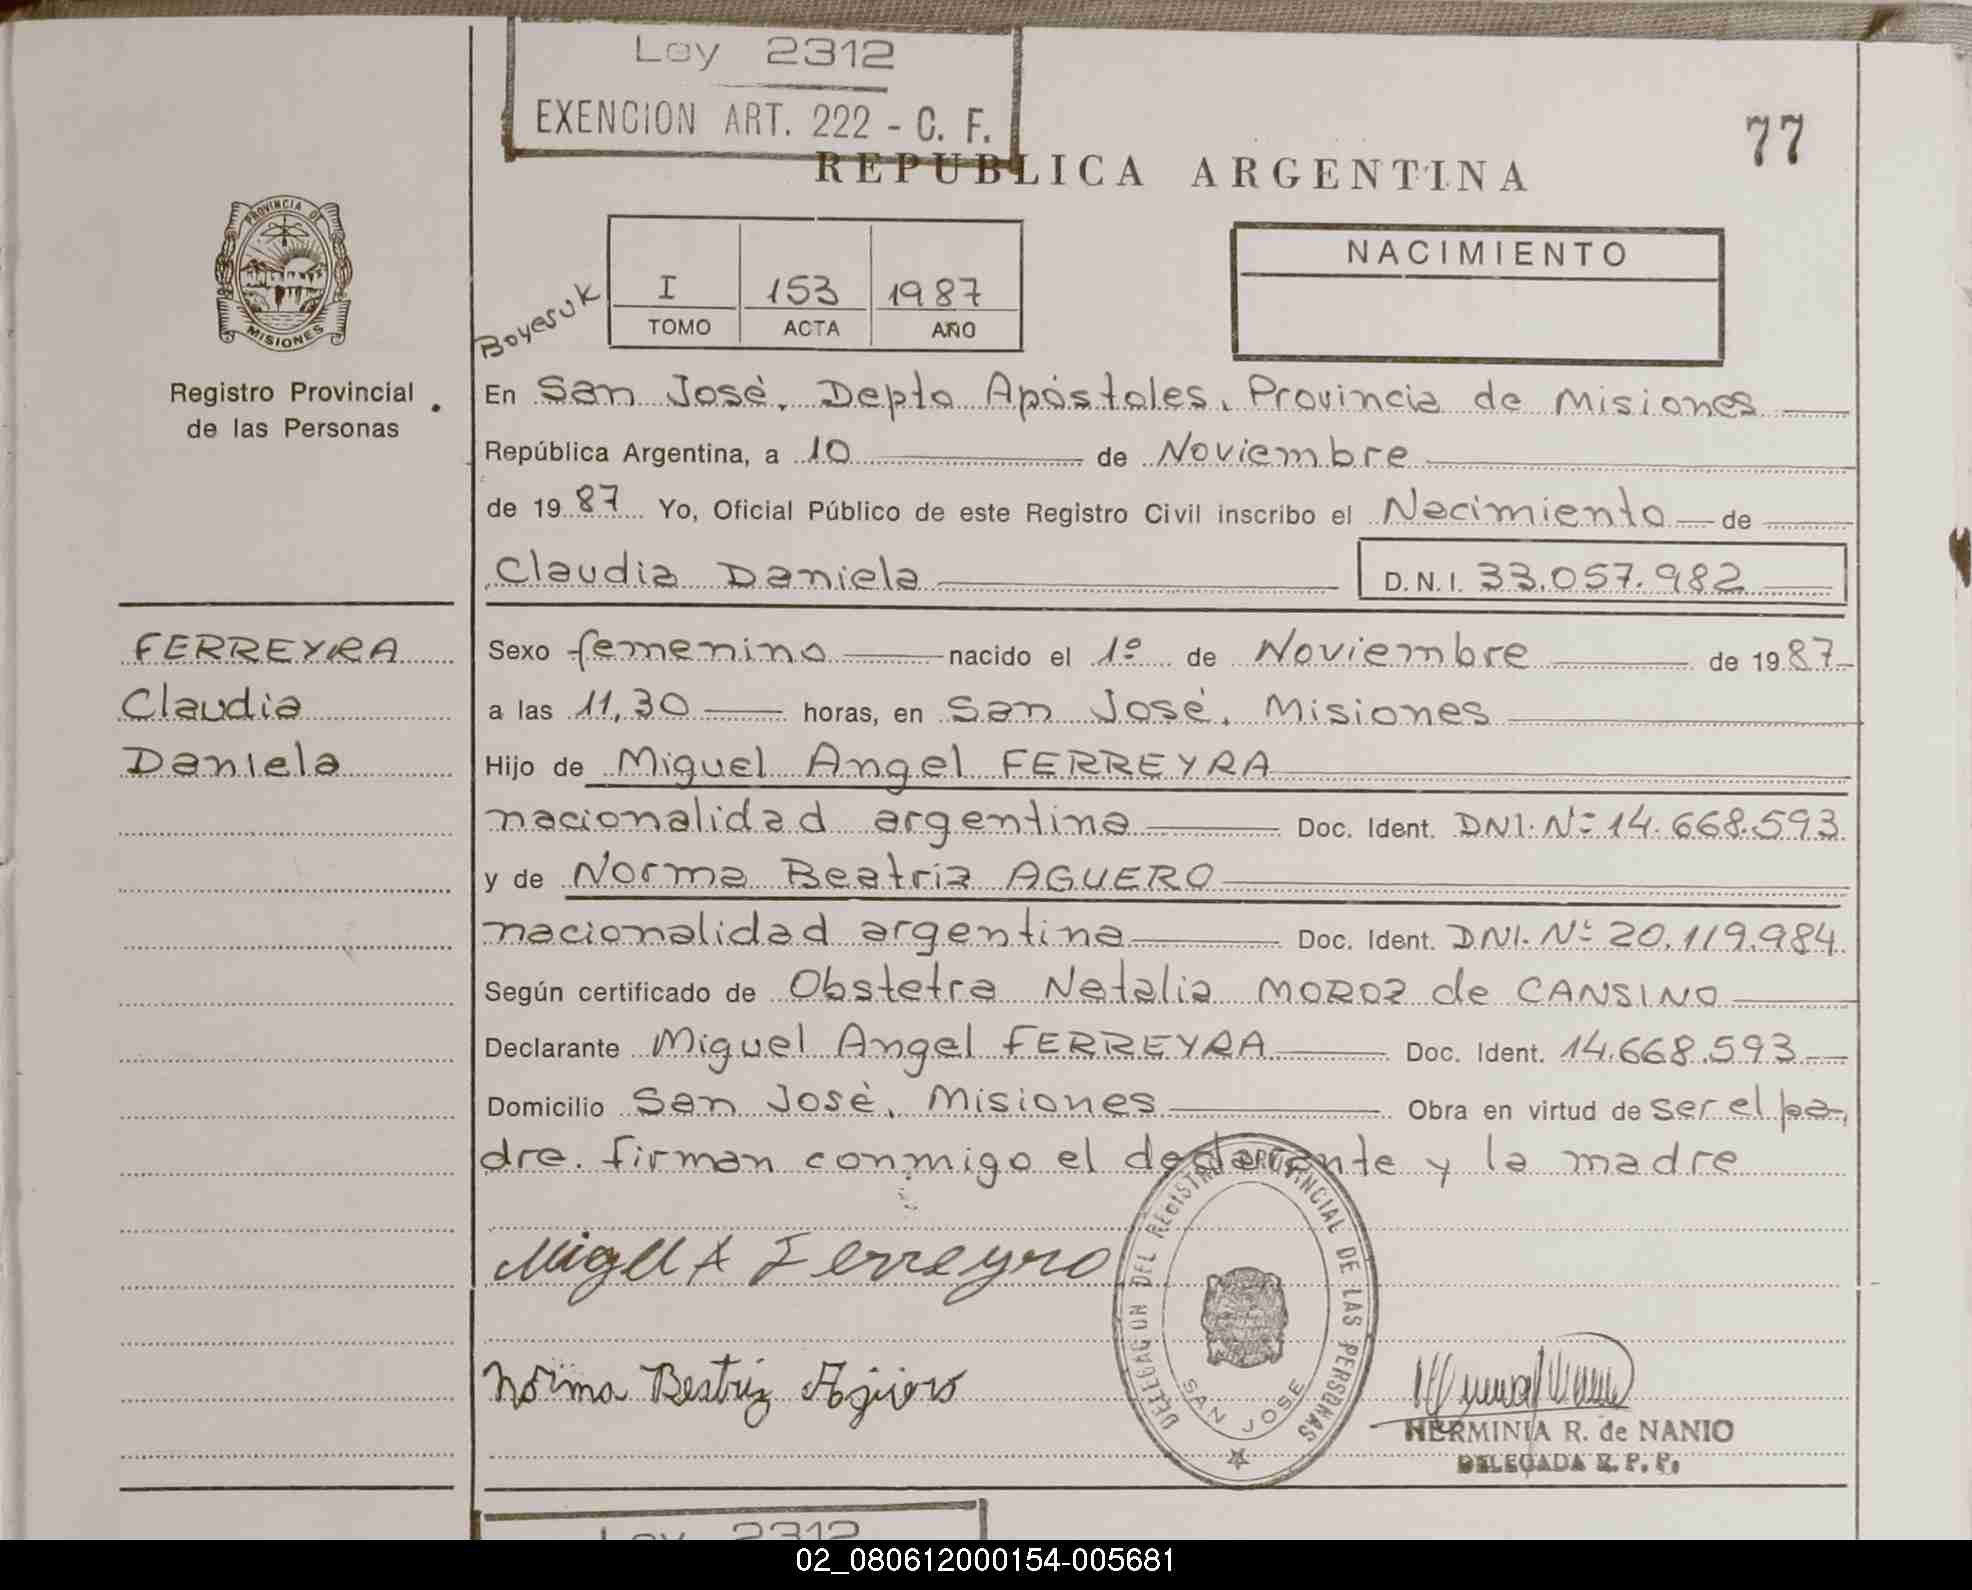 Ley 2312
EXENCION ART. 222 - C. F.
77
REPUBLICA ARGENTINA
PROVINCIA DE
MISIONES
Registro Provincial
de las Personas
Boyesuk
I 153 1987
TOMO ACTA AÑO
NACIMIENTO
En San José, Depto Apóstoles, Provincia de Misiones
República Argentina, a 10 de Noviembre
de 1987 Yo, Oficial Público de este Registro Civil inscribo el Nacimiento de
Claudia Daniela D.N.I. 33.057.982
FERREYRA
Claudia
Daniela
Sexo femenino nacido el 1º de Noviembre de 1987
a las 11,30 horas, en San José, Misiones
Hijo de Miguel Angel FERREYRA
nacionalidad argentina Doc. Ident. DNI. Nº 14.668.593
y de Norma Beatriz AGUERO
nacionalidad argentina Doc. Ident. DNI. Nº 20.119.984
Según certificado de Obstetra Natalia MOROZ de CANSINO
Declarante Miguel Angel FERREYRA Doc. Ident. 14.668.593
Domicilio San José, Misiones Obra en virtud de ser el pa-
dre. firman conmigo el declarante y la madre
Migel A Ferreyro
Norma Beatriz Agüero
DELEGACION DEL REGISTRO PROVINCIAL DE LAS PERSONAS
SAN JOSE
HERMINIA R. de NANIO
DELEGADA R. P. P.
Ley 2312
02_080612000154-005681